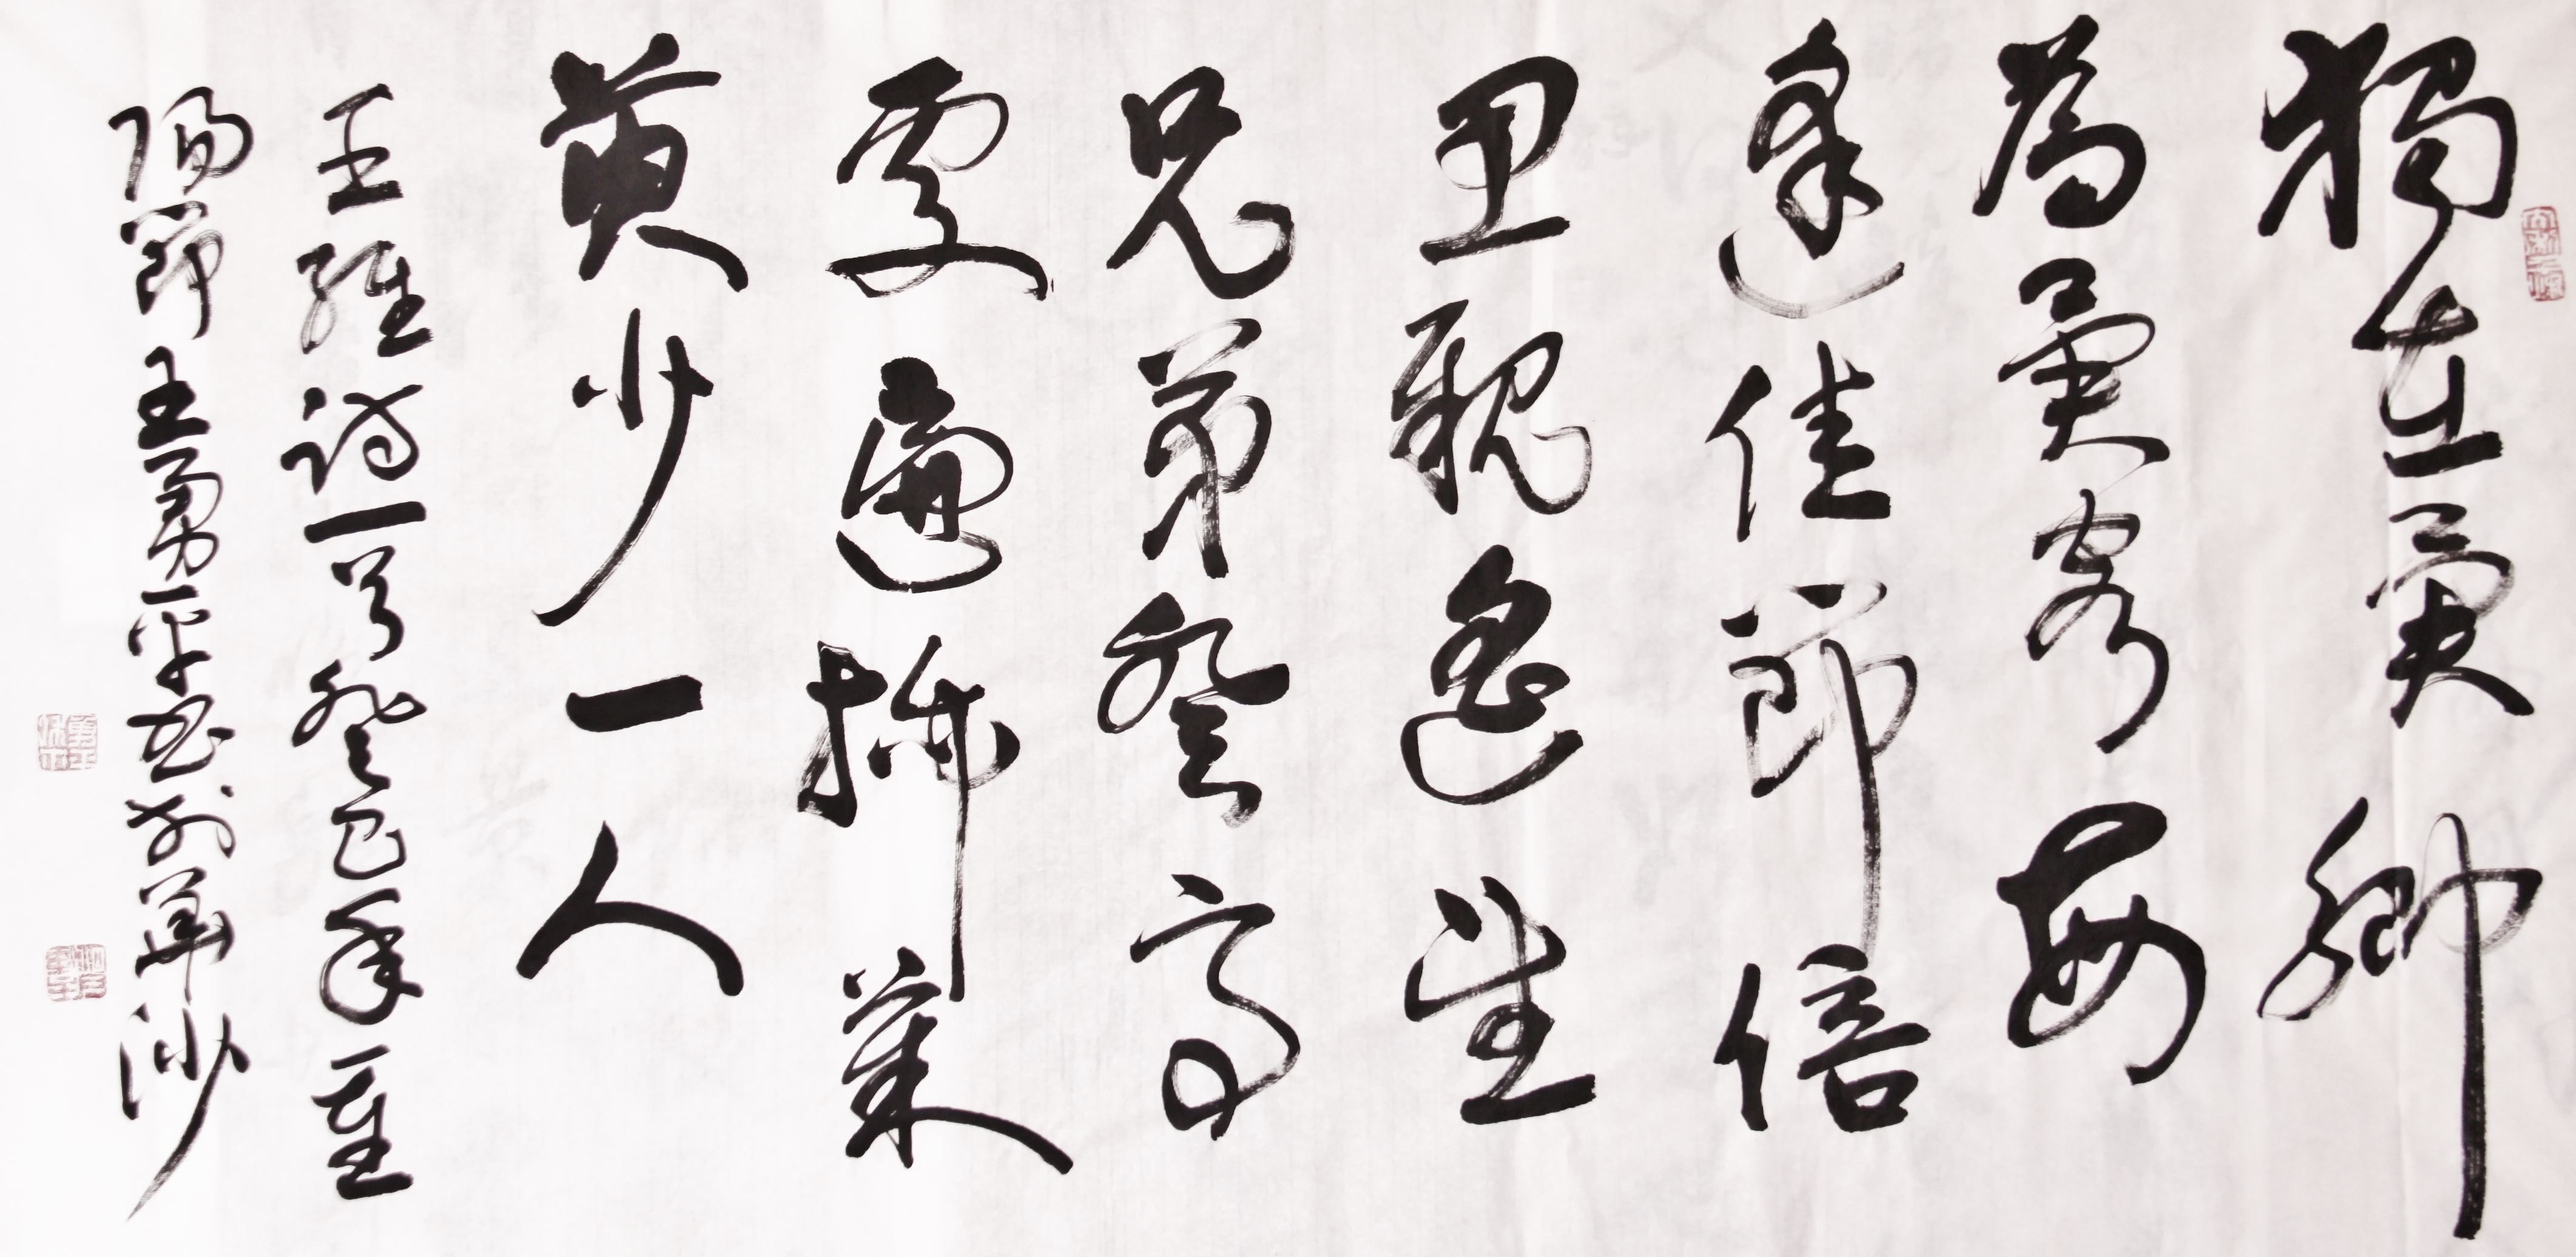 獨在異鄉
為異客每
逢佳節倍
思親遙望
兄弟登高
處遍插茱
萸少一人
王維詩一首癸巳年重
陽節王勇平書於華沙